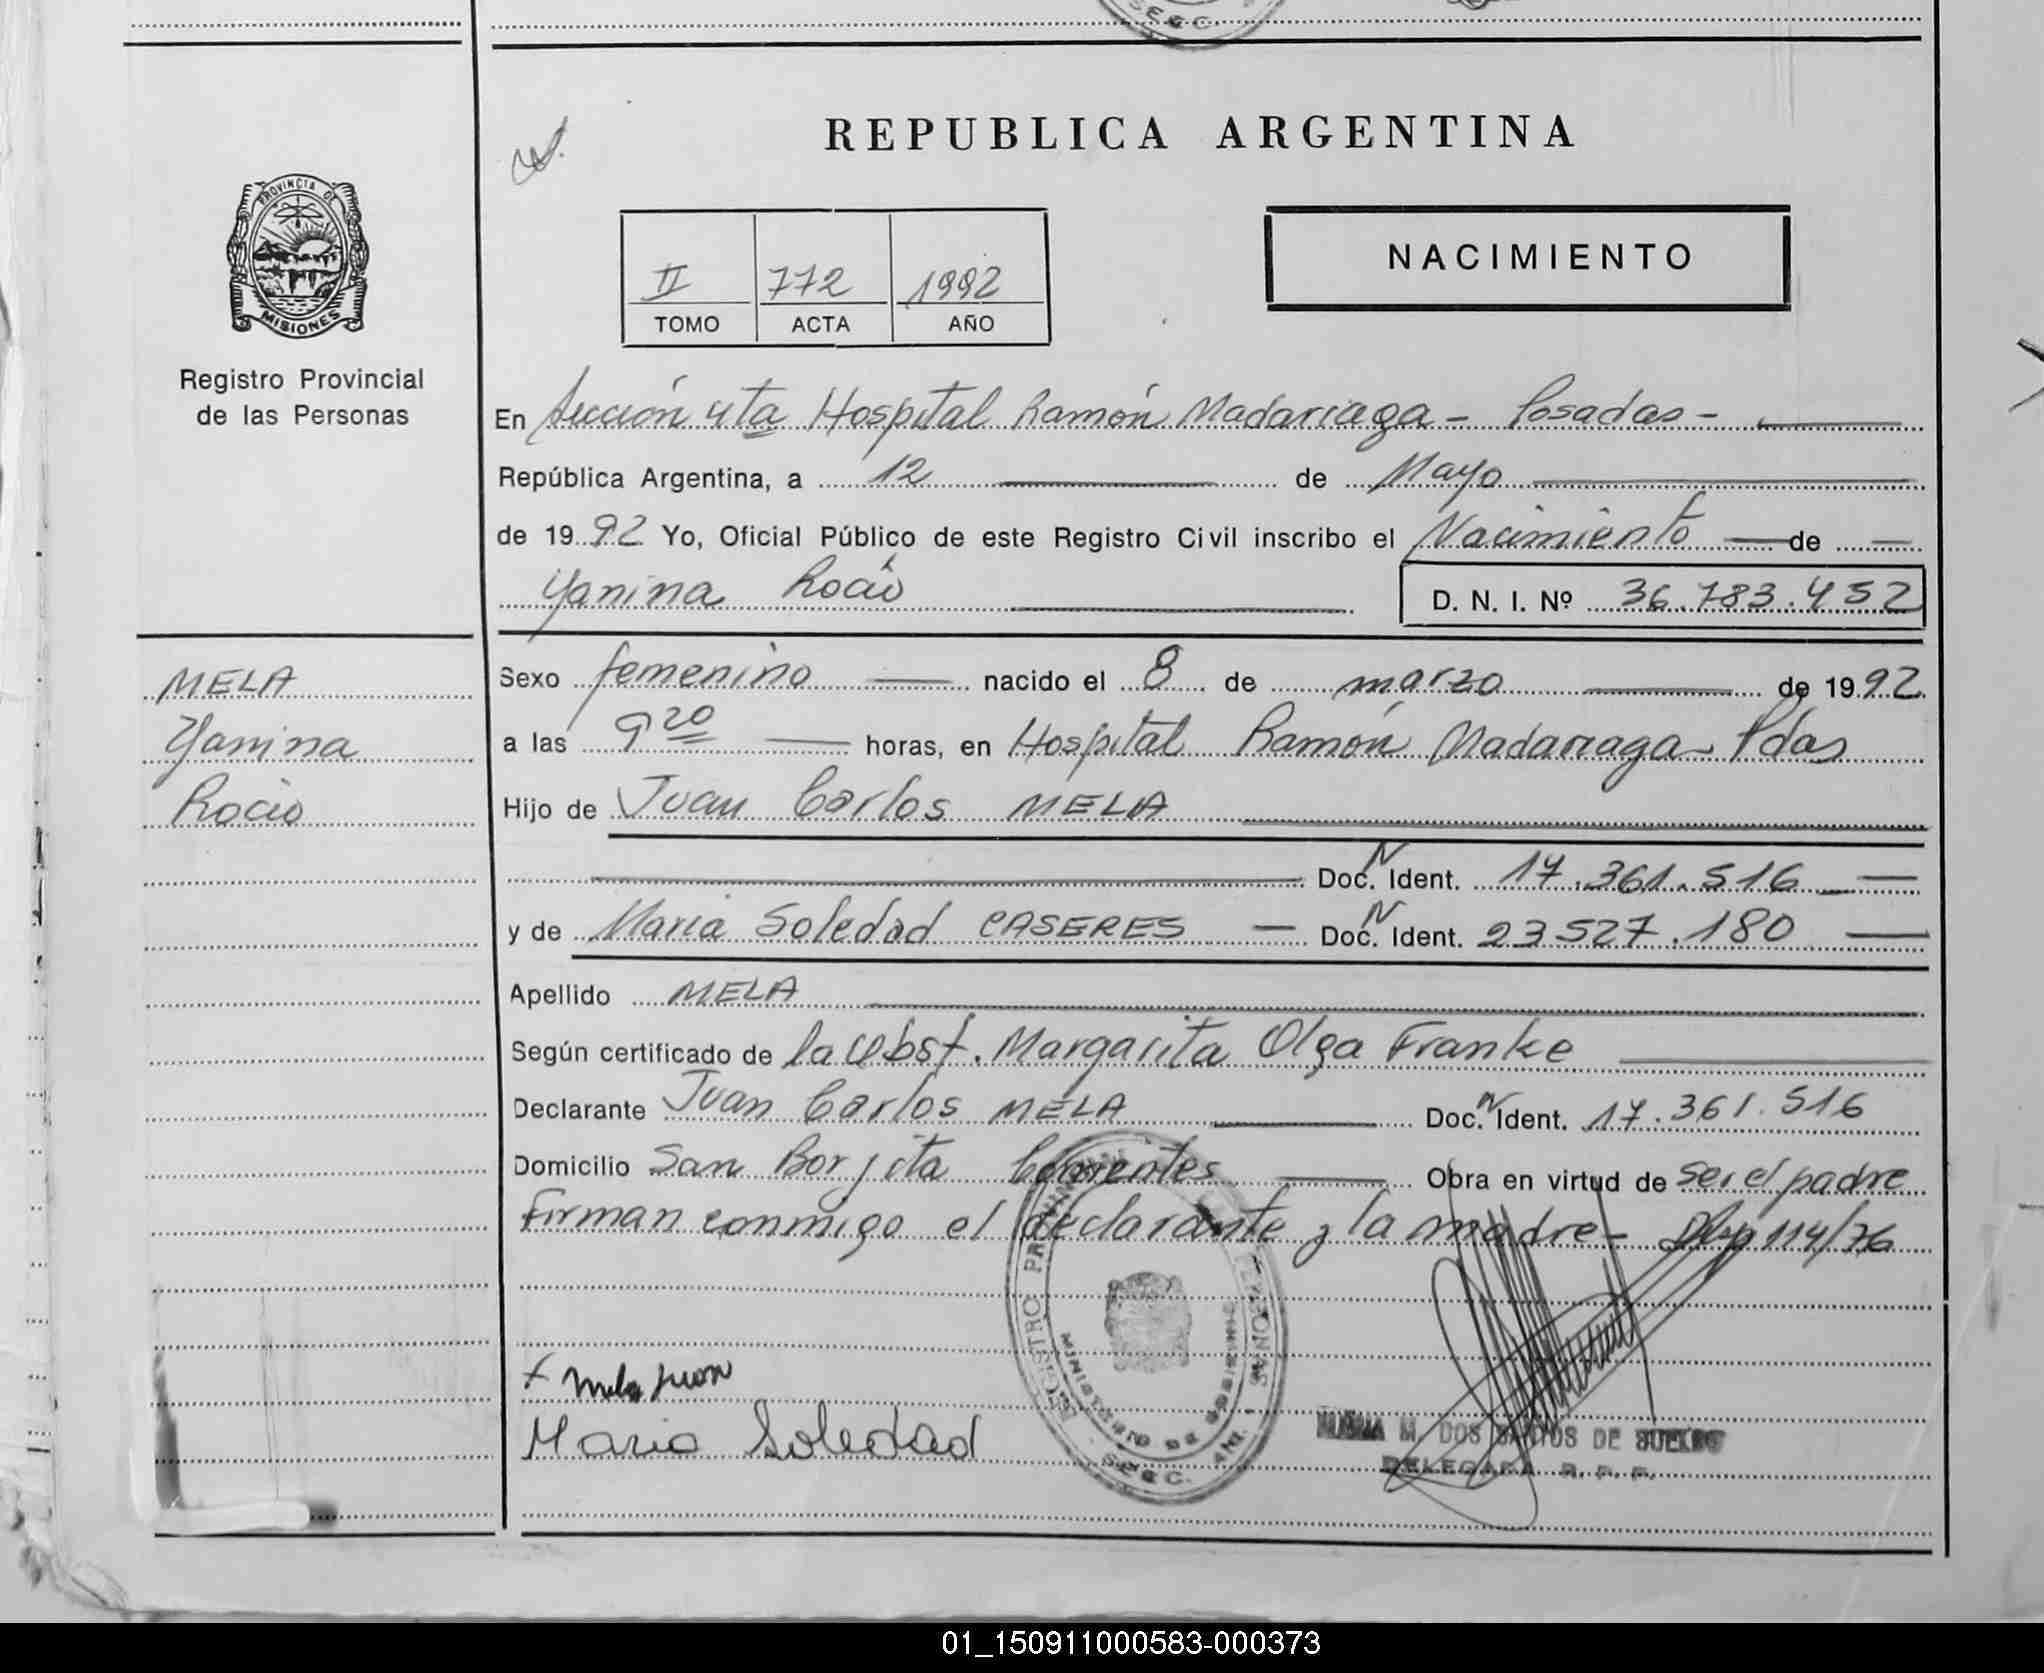 S.E.G.C.
REPUBLICA ARGENTINA
PROVINCIA DE
MISIONES
Registro Provincial
de las Personas
II 772 1992
TOMO ACTA AÑO
NACIMIENTO
En Sección 4ta Hospital Ramón Madariaga - Posadas -
República Argentina, a 12 de Mayo
de 1992 Yo, Oficial Público de este Registro Civil inscribo el Nacimiento de
Yanina Rocío D. N. I. Nº 36.783.452
MELA
Yanina
Rocío
Sexo femenino nacido el 8 de marzo de 1992
a las 9 20 horas, en Hospital Ramón Madariaga - Pdas
Hijo de Juan Carlos MELA
Doc. N Ident. 17.361.516
y de Maria Soledad CASERES Doc. N Ident. 23527.180
Apellido MELA
Según certificado de la obst. Margarita Olga Franke
Declarante Juan Carlos MELA Doc. N Ident. 17.361.516
Domicilio San Borjita Corrientes Obra en virtud de ser el padre
Firman conmigo el declarante y la madre - 114/76
REGISTRO PROVINCIAL PERSONAS
MINISTERIO DE GOBIERNO
S.E.G.C.
+ Mela Juan
Maria Soledad
M. DOS SANTOS DE
DELEGADA R. P. P.
01_150911000583-000373